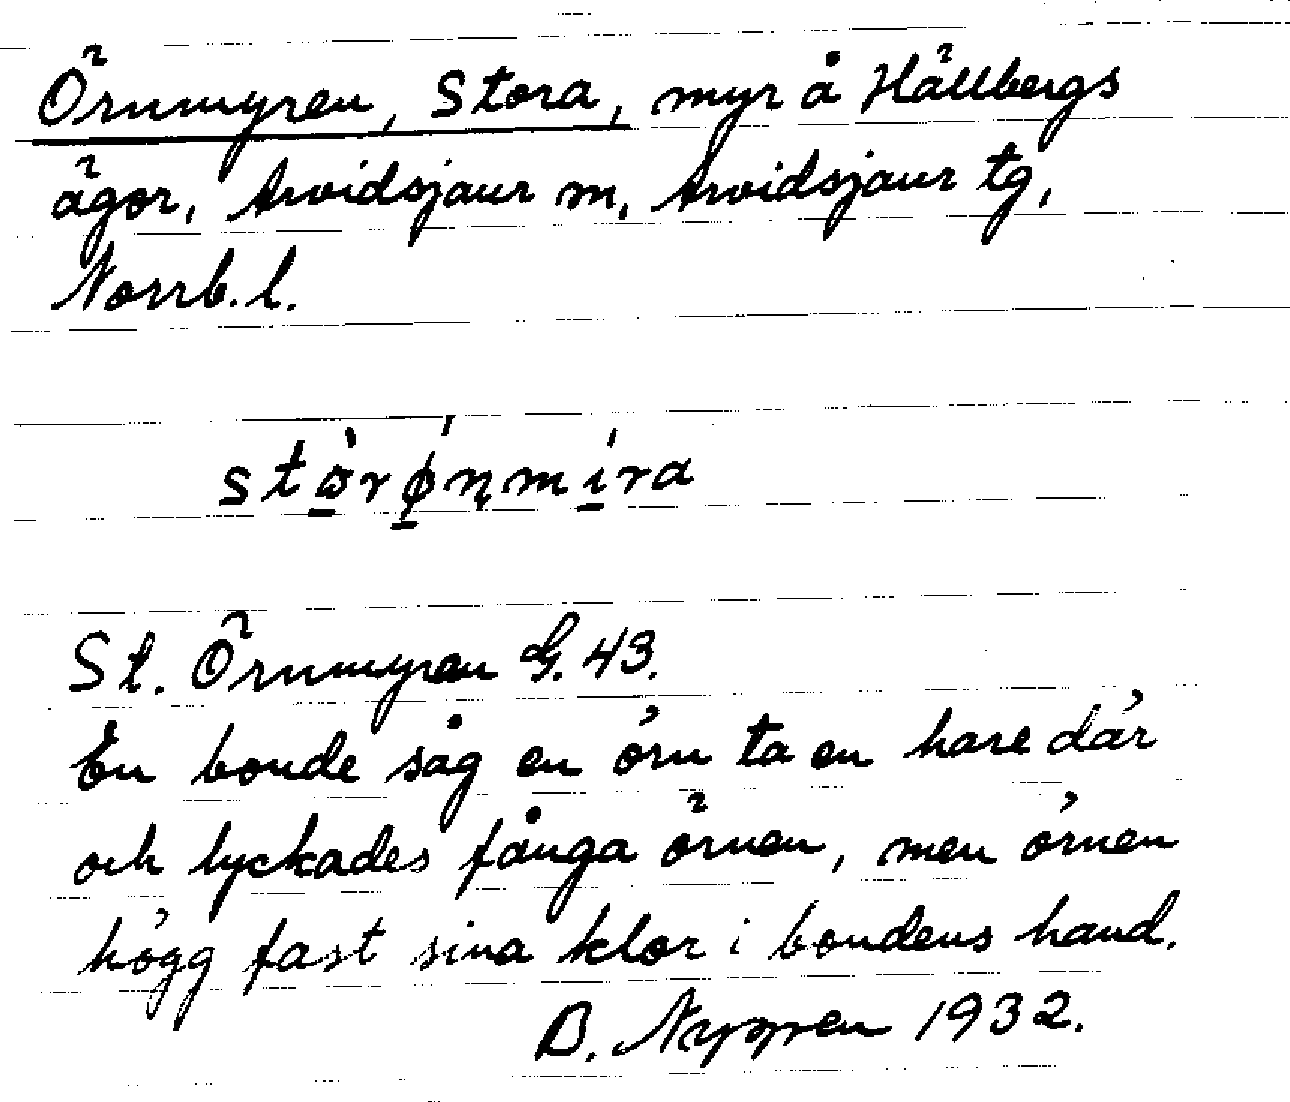 Örnmyren, Stora, myr å Hällbergs
ägor, Arvidsjaur sn, Arvidsjaur tg,
Norrb. l.
St. Örnmyren G. 43.
En bonde såg en örn ta en hare där
och lyckades fånga örnen, men örnen
högg fast sina klor i bondens hand.
B. 1932.